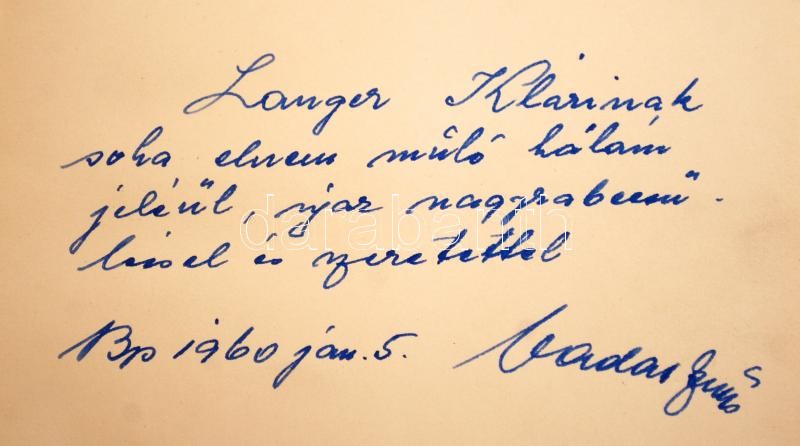 Langer Klárinak
soha elnem múló hálám
jeléül, igaz nagyrabecsü-
léssel és szeretettel
Bp 1960 jan. 5. Vadas Ernő
darabanth